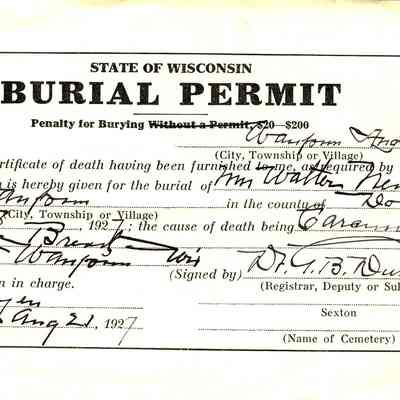 STATE OF WISCONSIN
BURIAL PERMIT
Penalty for Burying Without a Permit, $20—$200
Waupun Aug
(City, Township or Village)
ertificate of death having been furnished to me, as required by
is hereby given for the burial of Mrs Walter
aupun in the county of Do
(City, Township or Village)
1927; the cause of death being
Waupun Wis
(Signed by) Dr. G. B. Du
n in charge. (Registrar, Deputy or Sub
Aug 21, 1927 Sexton
(Name of Cemetery)